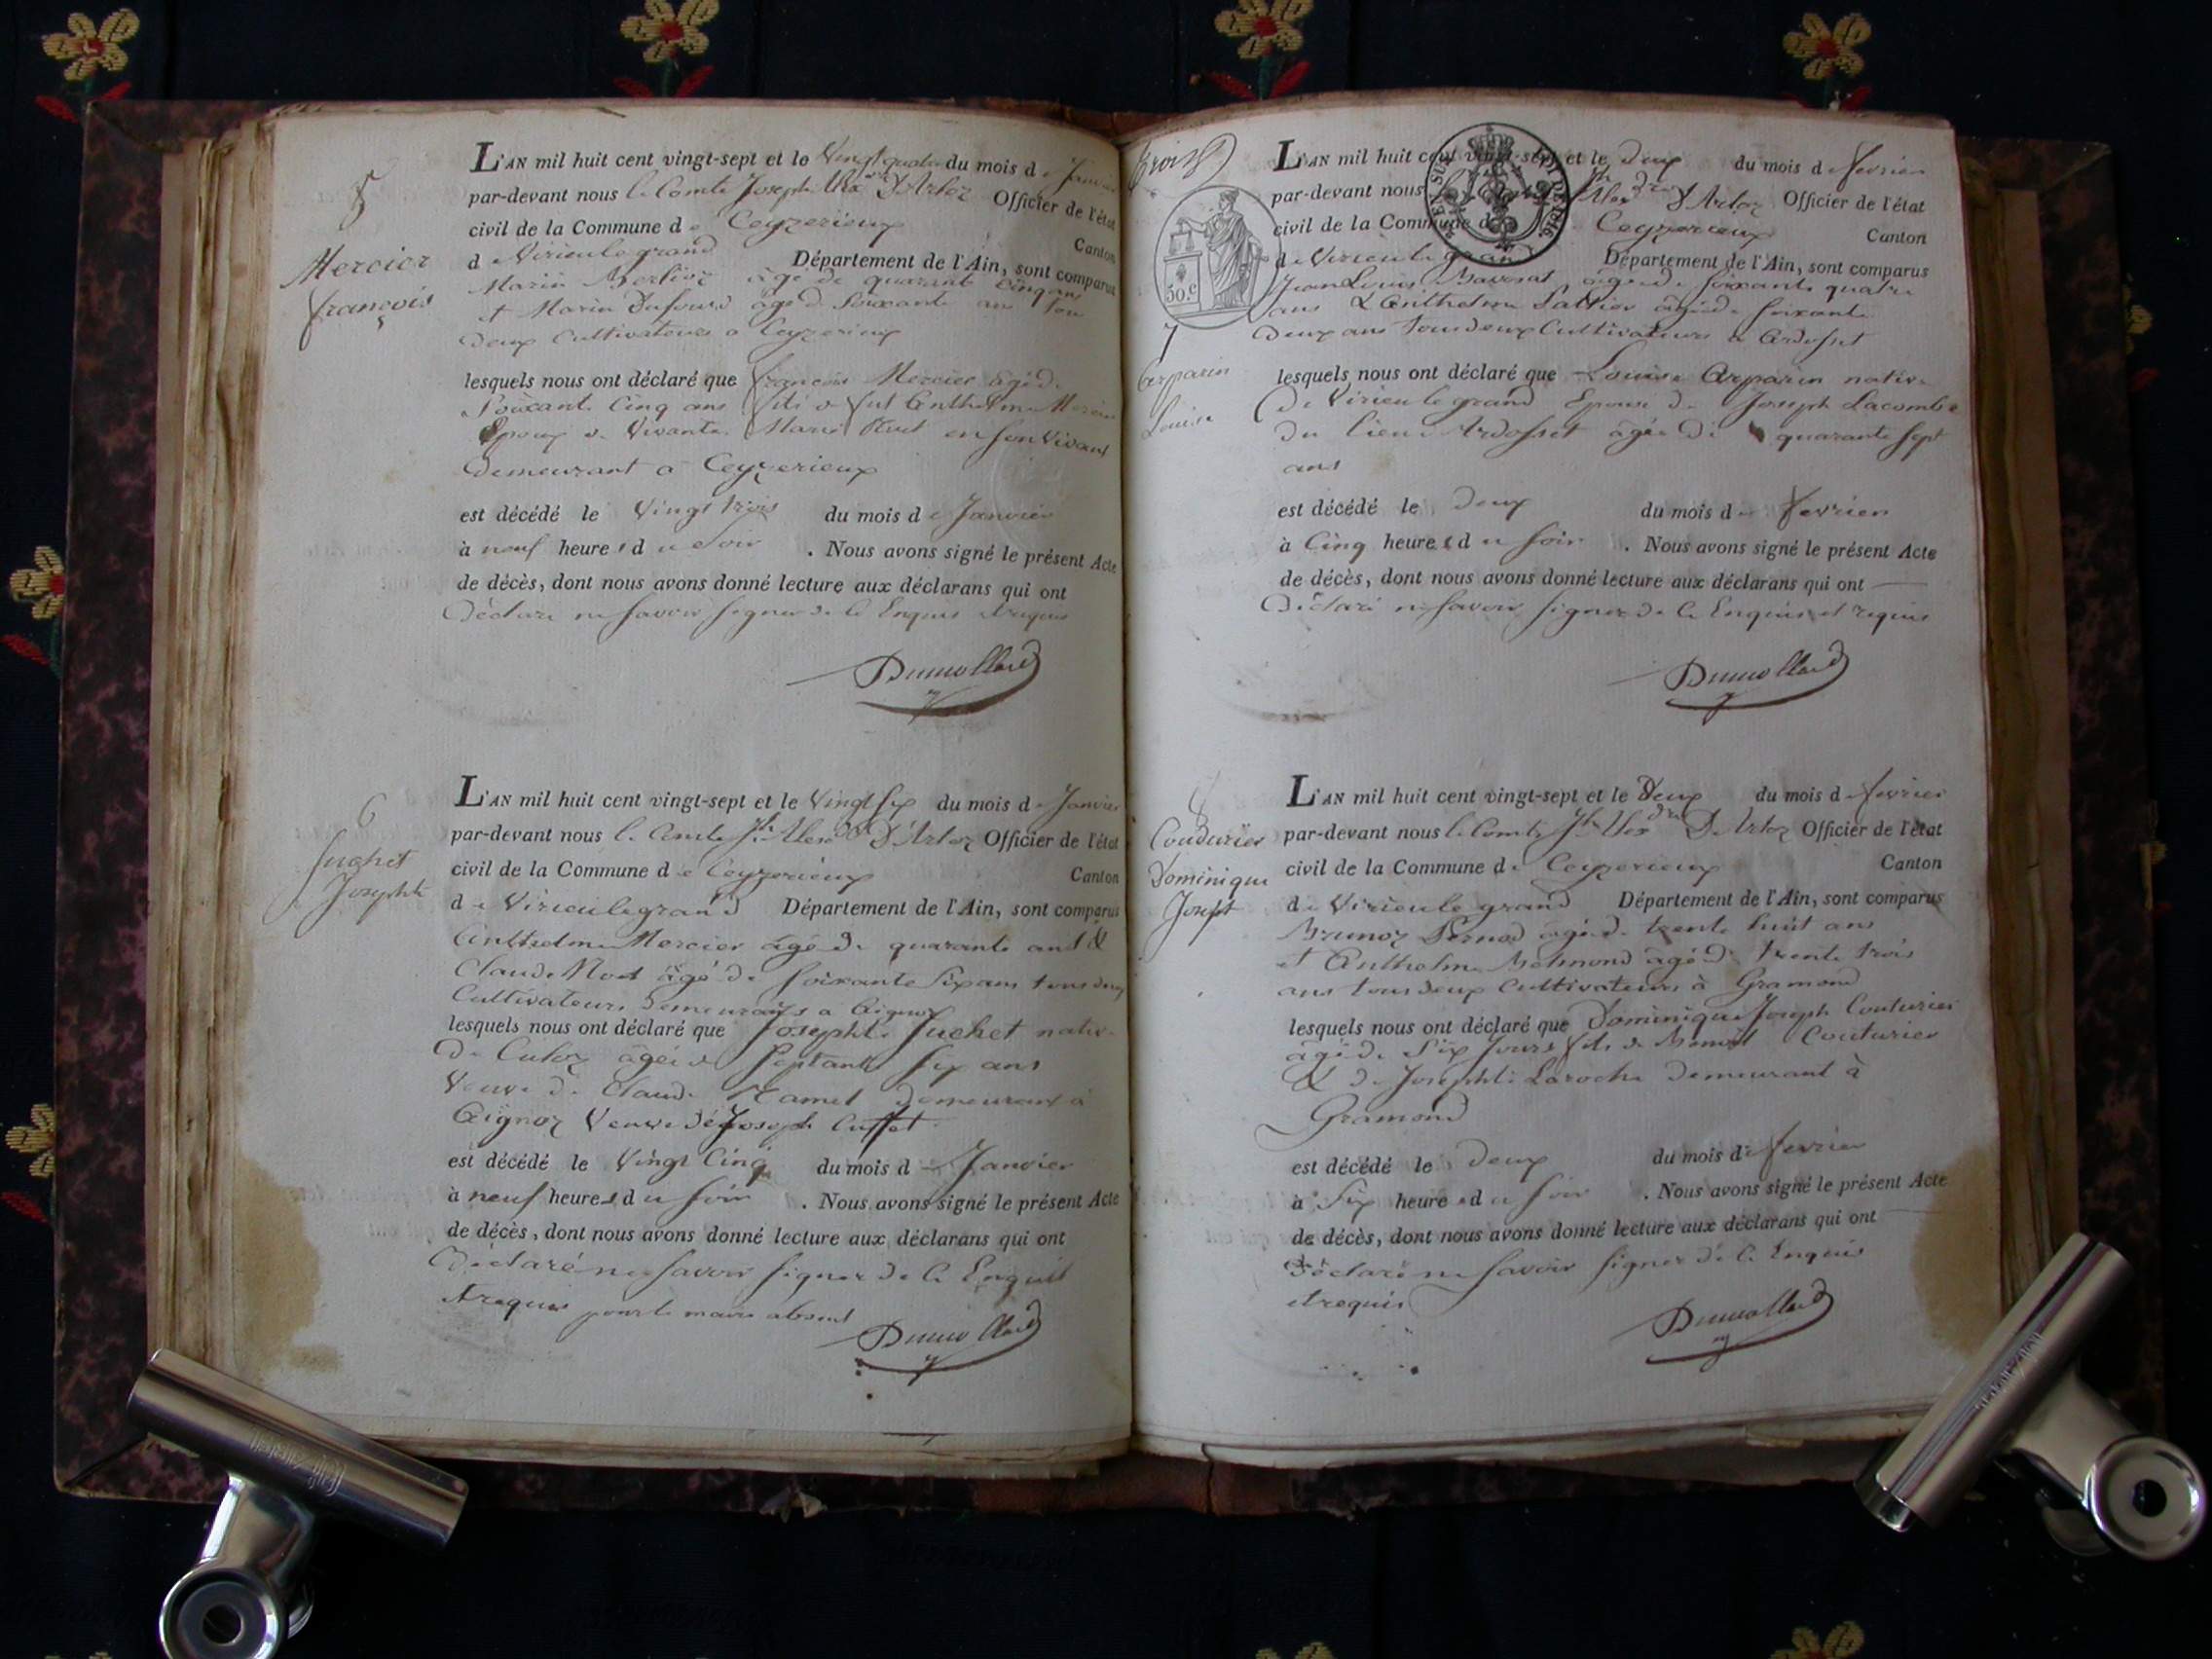 5
Mercier
françois
L'AN mil huit cent vingt-sept et le Vingt quatre du mois de Janvier
par-devant nous le Comte Joseph Alex dre D'Arloz Officier de l'état
civil de la Commune de Ceyzerieux Canton
de Virieulegrand Département de l'Ain, sont comparus
Marin Berlioz âgé de quarante Cinq ans
et Marin Dufour âgé de Soixante ans tou
deux Cultivateurs a Ceyzerieux
lesquels nous ont déclaré que françois Mercier âgé de
Soixante Cinq ans fils de fut Anthelme Mercier
Epoux de Vivante Marie en Son Vivant
Demeurant à Ceyzerieux
est décédé le Vingt trois du mois de Janvier
à neuf heures du Soir . Nous avons signé le présent Acte
de décès, dont nous avons donné lecture aux déclarans qui ont
Déclaré ne Savoir Signer de Ce Enquis et requis
Dumollard
6
Suchet
Josephte
L'AN mil huit cent vingt-sept et le Vingt Six du mois de Janvier
par-devant nous le Comte Jh Alexdre D'Arloz Officier de l'état
civil de la Commune de Ceyzerieux Canton
de Virieulegrand Département de l'Ain, sont comparus
Anthelme Mercier âgé de quarante ans &
Claude âgé de Soixante Six ans tous deux
Cultivateurs Demeurants a Aignoz
lesquels nous ont déclaré que Josephte Suchet native
De Culoz âgée de Septante Six ans
Veuve de Claude Hamel Demeurant à
Aignoz Veuve de Joseph
est décédé le Vingt Cinq du mois de Janvier
à neuf heures du Soir . Nous avons signé le présent Acte
de décès, dont nous avons donné lecture aux déclarans qui ont
Déclaré ne Savoir Signer de Ce Enquis
et requis pour le maire absent
Dumollard
trois
50.C
7
Carparin
Louise
L'AN mil huit cent vingt-sept et le Deux du mois de fevrier
par-devant nous le Comte Jh Alex dre D'Arloz Officier de l'état
civil de la Commune de Ceyzerieux Canton
de Virieulegrand Département de l'Ain, sont comparus
Jean Louis âgé de Soixante quatre
ans & Anthelme âgé de Soixante
Deux ans tous deux Cultivateurs a Ardosset
lesquels nous ont déclaré que Louise Carparin native
De Virieulegrand Epouse de Joseph Lacombe
du lieu d'Ardosset âgée de quarante Sept
ans
est décédé le Deux du mois de fevrier
à Cinq heures du Soir . Nous avons signé le présent Acte
de décès, dont nous avons donné lecture aux déclarans qui ont
Déclaré ne Savoir Signer de Ce Enquis et requis
Dumollard
8
Couturier
Dominique
Joseph
L'AN mil huit cent vingt-sept et le Deux du mois de fevrier
par-devant nous le Comte Jh Alex dre D'Arloz Officier de l'état
civil de la Commune de Ceyzerieux Canton
de Virieule grand Département de l'Ain, sont comparus
Brunoz Pernod âgé de trente huit ans
et Anthelme âgé de trente trois
ans tous deux Cultivateurs à Gramond
lesquels nous ont déclaré que Dominique Joseph Couturier
âgé de Six Jours fils de Benoit Couturier
& de Josephte Laroche Demeurant à
Gramond
est décédé le Deux du mois de fevrier
à Six heures du Soir . Nous avons signé le présent Acte
de décès, dont nous avons donné lecture aux déclarans qui ont
Déclaré ne Savoir Signer de Ce Enquis
et requis
Dumollard